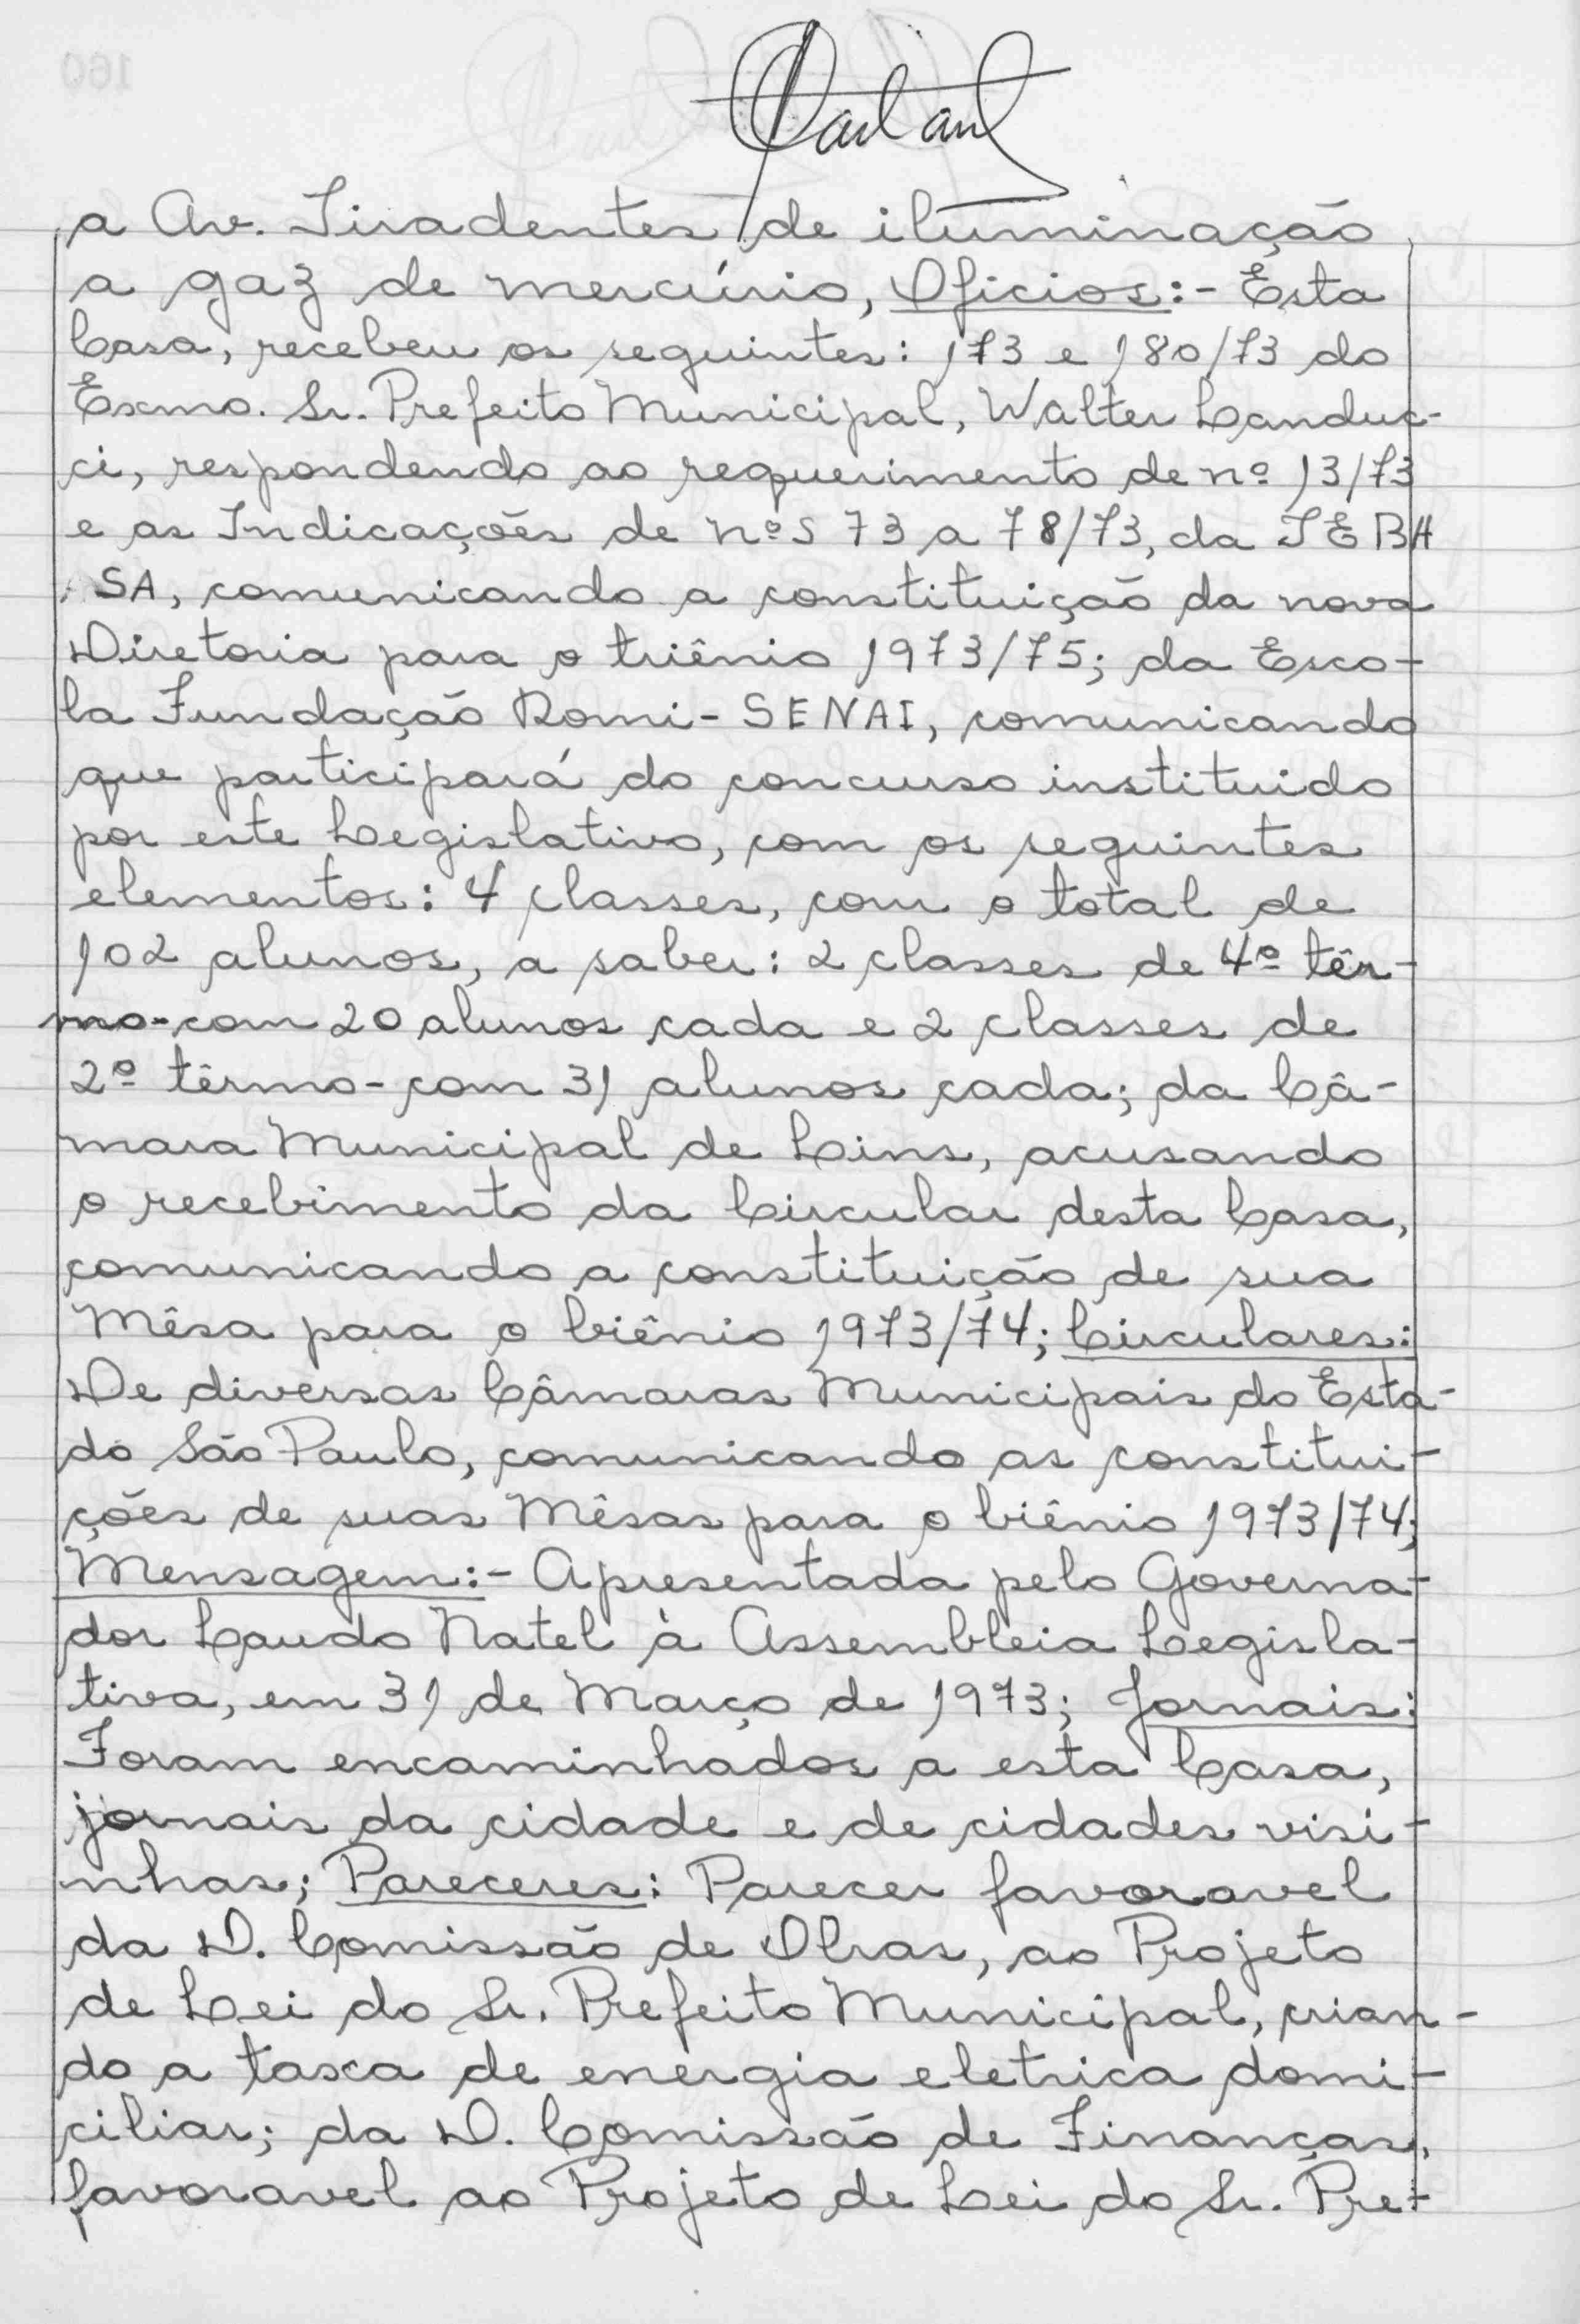 a Av. Tiradentes de iluminação
a gaz de mercúrio, Oficios:- Esta
Casa, recebeu os seguintes: 173 e 180/73 do
Exmo. Sr. Prefeito Municipal, Walter Landuc-
ci, respondendo ao requerimento de nº 13/73
e as Indicações de nºs 73 a 78/73, da TEBA
SA, comunicando a constituição da nova
Diretoria para o triênio 1973/75; da Esco-
la Fundação Romi- SENAI, comunicando
que participará do concurso instituido
por este Legislativo, com os seguintes
elementos: 4 classes, com o total de
102 alunos, a saber: 2 classes de 4º têr-
mo- com 20 alunos cada e 2 classes de
2º têrmo- com 31 alunos cada; da Câ-
mara Municipal de Lins, acusando
o recebimento da Circular desta Casa,
comunicando a constituição de sua
Mêsa para o biênio 1973/74; Circulares:
De diversas Câmaras Municipais do Esta-
do São Paulo, comunicando as constitui-
ções de suas Mêsas para o biênio 1973/74;
Mensagem:- Apresentada pelo Governa-
dor Laudo Natel à Assembleia Legisla-
tiva, em 31 de Março de 1973; Jornais:
Foram encaminhados a esta Casa,
jornais da cidade e de cidades visi-
nhas; Pareceres: Parecer favoravel
da D. Comissão de Obras, ao Projeto
de Lei do Sr. Prefeito Municipal, crian-
do a taxa de energia eletrica domi-
ciliar; da D. Comissão de Finanças,
favoravel ao Projeto de Lei do Sr. Pre-